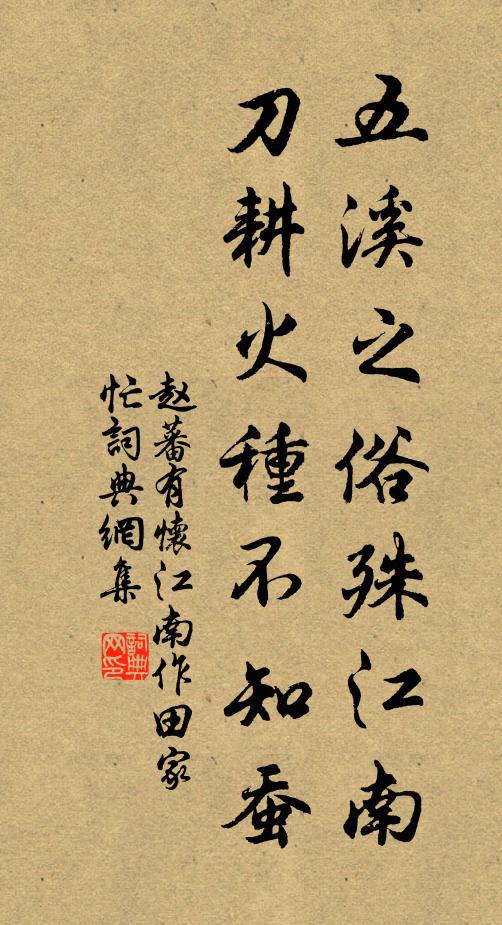 五溪之俗殊江南
刀耕火種不知蚕
赵蕃有懷江南作田家
忙詞典網集
詞典
网印